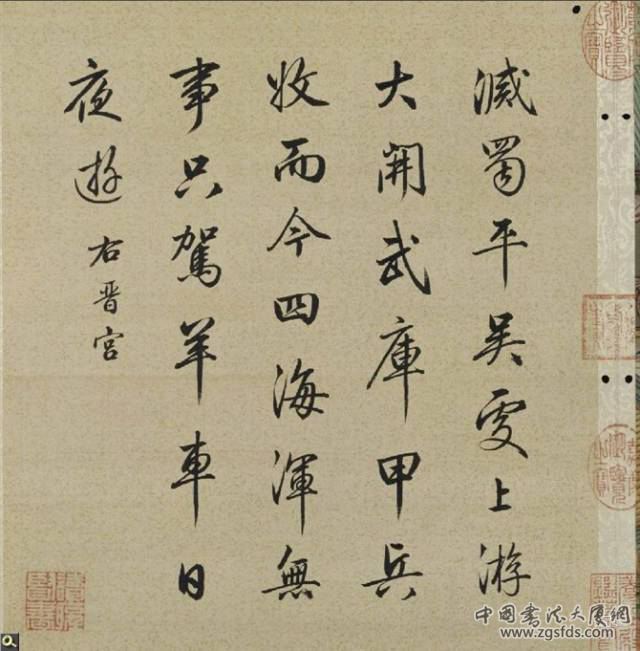 滅蜀平吳上游
大開武庫甲兵
收而今四海渾無
事只駕羊車日
夜遊 右晋宮
中國書法大廈網
www.zgsfds.com